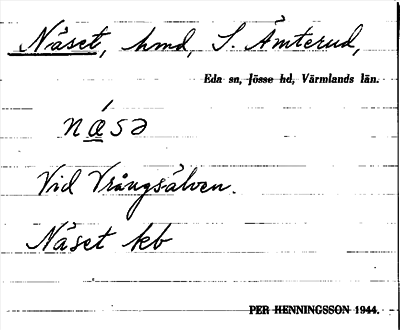 Näset, hmd, S. Ämterud,
Eda sn, Jösse hd, Värmlands län.
nǽsə
Vid Vrångsälven.
Näset kb
PER HENNINGSSON 1944.